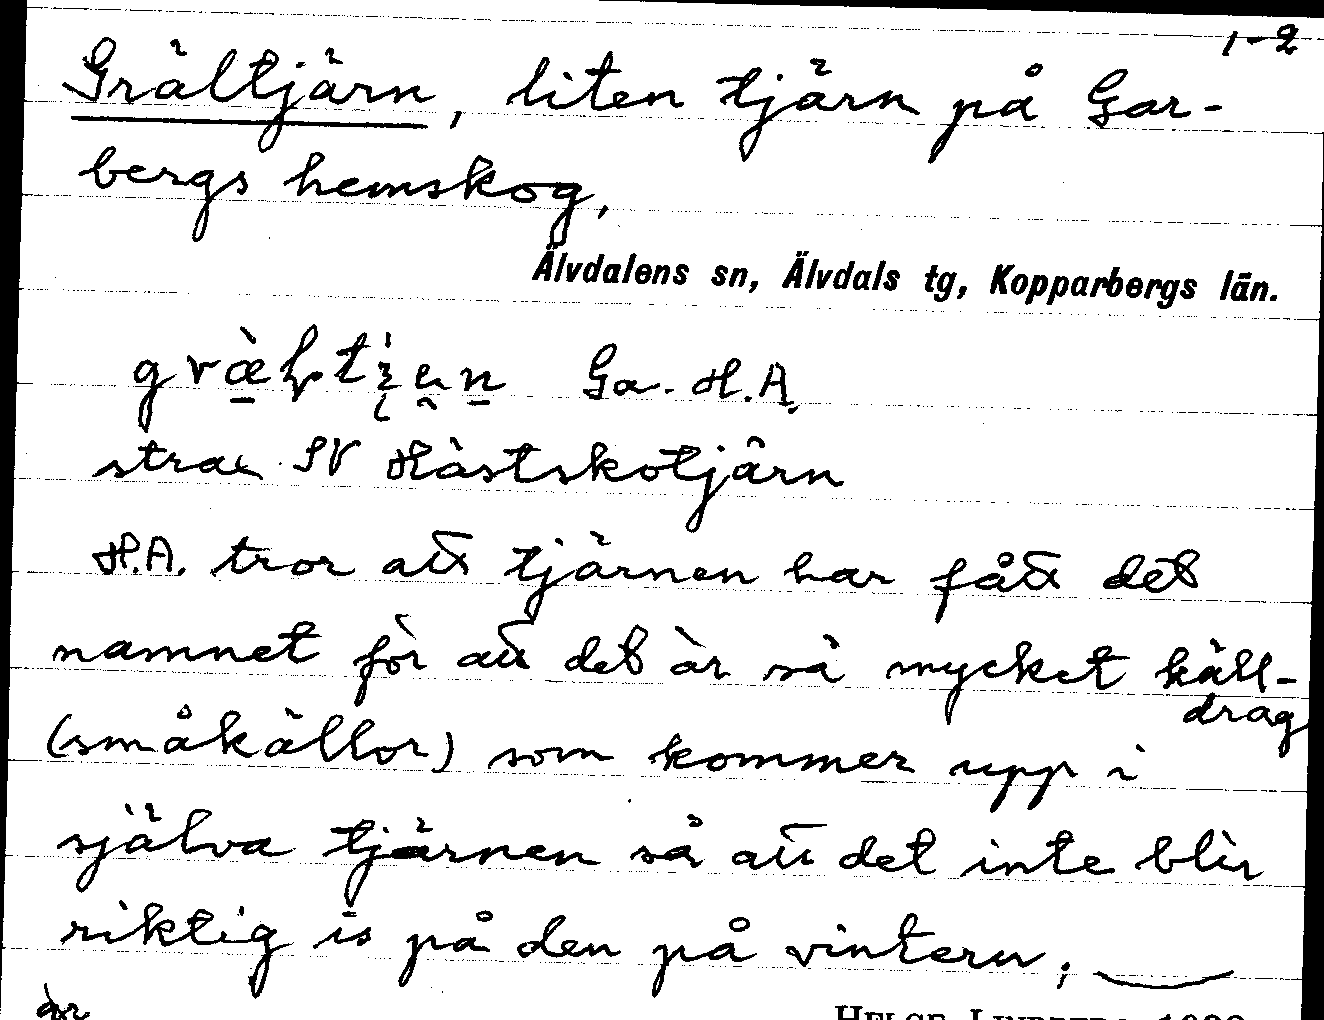 1-2
Grältjärn, liten tjärn på Gar-
bergs hemskog,
Älvdalens sn, Älvdals tg, Kopparbergs län.
Ga. H.A.
strax SV Hästskotjärn
H.A. tror att tjärnen har fått det
namnet för att det är så mycket käll-
drag
(småkällor) som kommer upp i
själva tjärnen så att det inte blir
riktig is på den på vintern;
är